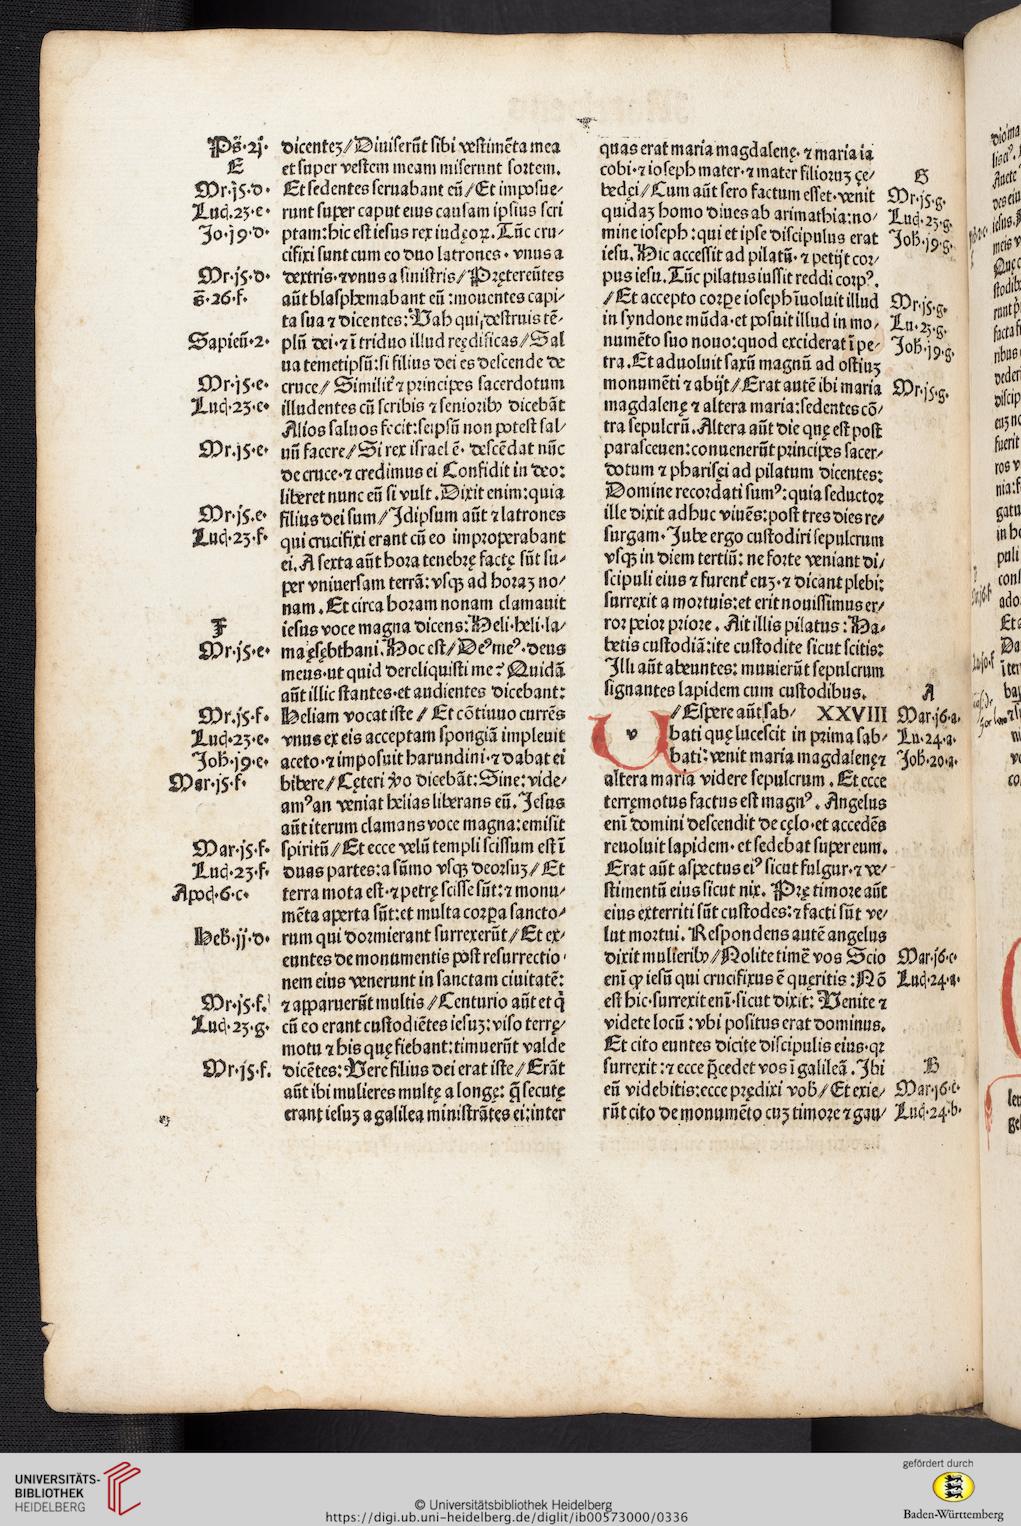 Ps̄·2j· dicentez/Diuiserūt sibi vestimēta mea
E et super vestem meam miserunt sortem.
Mr·j5·d· Et sedentes seruabant eū/Et imposue⸗
Luc̄·23·e· runt super caput eius causam ipsius scri
Jo·j9·d· ptam:hic est iesus rex iudęoꝝ.Tūc cru⸗
cifixi sunt cum eo duo latrones· vnus a
Mr·j5·d· dextris·⁊vnus a sinistris/Prętereūtes
ḡ·26·f· aūt blasphemabant eū:mouentes capi⸗
ta sua ⁊ dicentes:Vah qui destruis tē⸗
Sapieū·2· plū dei·⁊ ī triduo illud reędificas/Sal
ua temetipsū:si filius dei es descende de
Mr·j5·e· cruce/ Similit̄ ⁊ principes sacerdotum
Luc̄·23·e· illudentes cū scribis ⁊ seniorib⁹ dicebāt
Alios saluos fecit:seipsū non potest sal⸗
Mr·j5·e· uū facere/Si rex israel ē· descēdat nūc
de cruce·⁊ credimus ei Confidit in deo:
liberet nunc eū si vult.Dixit enim:quia
Mr·j5.e· filius dei sum/Idipsum aūt ⁊ latrones
Luc̄·23·f· qui crucifixi erant cū eo improperabant
ei.A sexta aūt hora tenebrę factę sūt su⸗
per vniuersam terrā: vsqꝫ ad horaꝫ no⸗
nam.Et circa horam nonam clamauit
F iesus voce magna dicens:Heli·heli·la⸗
Mr·j5·e· mazębthani.Hoc est/De⁹me⁹·deus
meus·ut quid dereliquisti me? Quidā
aūt illic stantes·et audientes dicebant:
Mr·j5·f· Heliam vocat iste/ Et cōtinuo currēs
Luc̄·23·e· vnus ex eis acceptam spongiā impleuit
Joh̄·j9·e· aceto·⁊ imposuit harundini·⁊ dabat ei
Mar·j5·f· bibere/Cęteri ꝟo dicebāt:Sine:vide⸗
am⁹an veniat helias liberans eū.Jesus
aūt iterum clamans voce magna:emisit
Mar·j5·f· spiritū/Et ecce velū templi scissum est ī
Luc̄·23·f· duas partes:a sūmo vsqꝫ deorsuꝫ/ Et
Apoc̄·6·c· terra mota est·⁊ petrę scisse sūt:⁊ monu⸗
mēta aperta sūt:et multa corꝑa sancto⸗
Heb̄·jj·d· rum qui dormierant surrexerūt/Et ex⸗
euntes de monumentis post resurrectio
nem eius venerunt in sanctam ciuitatē:
Mr·j5·f. ⁊ apparuerūt multis/Centurio aūt et q̄
Luc̄·23·g· cū eo erant custodiētes iesuꝫ:viso terrę⸗
motu ⁊ his quę fiebant:timuerūt valde
Mr·j5·f. dicētes:Vere filius dei erat iste/Erāt
aūt ibi mulieres multę a longę: q̄ secutę
erant iesuꝫ a galilea ministrātes ei:inter
quas erat maria magdalenę·⁊ maria ia
cobi·⁊ ioseph mater·⁊ mater filioruꝫ ze⸗ G
bedęi/Cum aūt sero factum esset·venit Mr·j5·g.
quidaꝫ homo diues ab arimathia:no⸗ Luc̄·23·g.
mine ioseph:qui et ipse discipulus erat Joh̄·j9·g.
iesu.Hic accessit ad pilatū·⁊ petijt cor⸗
pus iesu.Tūc pilatus iussit reddi corp⁹.
/Et accepto corꝑe ioseph īuoluit illud Mr·j5·g.
in syndone mūda·et posuit illud in mo⸗ Lu·23·g.
numēto suo nouo:quod exciderat ī pe⸗ Joh̄·j9·g.
tra.Et aduoluit saxū magnū ad ostiuꝫ
monumēti ⁊ abijt/Erat autē ibi maria Mr·j5·g.
magdalenę ⁊ altera maria:sedentes cō⸗
tra sepulcrū.Altera aūt die quę est post
parasceuen:conuenerūt principes sacer⸗
dotum ⁊ pharisęi ad pilatum dicentes:
Domine recordati sum⁹:quia seductor
ille dixit adhuc viuēs:post tres dies re⸗
surgam·Iube ergo custodiri sepulcrum
vsqꝫ in diem tertiū: ne forte veniant di⸗
scipuli eius ⁊ furent̄ euꝫ·⁊ dicant plebi:
surrexit a mortuis:et erit nouissimus er⸗
ror peior priore. Ait illis pilatus:Ha⸗
betis custodiā:ite custodite sicut scitis:
Illi aūt abeuntes: munierūt sepulcrum
signantes lapidem cum custodibus. A
V /Espere aūt sab⸗ XXVIII Mar·j6·a.
bati quę lucescit in prima sab⸗ Lu·24·a.
bati:venit maria magdalenę⁊ Joh̄·20·a.
altera maria videre sepulcrum.Et ecce
terręmotus factus est magn⁹. Angelus
enī domini descendit de cęlo·et accedēs
reuoluit lapidem·et sedebat super eum.
Erat aūt aspectus ei⁹ sicut fulgur·⁊ ve⸗
stimentū eius sicut nix. Prę timore aūt
eius exterriti sūt custodes:⁊ facti sūt ve⸗
lut mortui.Respondens autē angelus
dixit mulierib⁹/Nolite timē̄ vos Scio Mar·j6·c·
enī ꝙ iesū qui crucifixus ē quęritis:Nō Luc̄·24·a.
est hic·surrexit enī·sicut dixit: Venite ⁊
videte locū:vbi positus erat dominus.
Et cito euntes dicite discipulis eius·qꝛ
surrexit:⁊ ecce p̄cedet vos ī galileā.Ibi B
eū videbitis:ecce prędixi vob̄/Et exie⸗ Mar·j6·c·
rūt cito de monumēto cuꝫ timore ⁊ gau⸗ Luc̄·24·b.
UNIVERSITÄTS-
BIBLIOTHEK
HEIDELBERG
© Universitätsbibliothek Heidelberg
https://digi.ub.uni-heidelberg.de/diglit/ib00573000/0336
gefördert durch
Baden-Württemberg